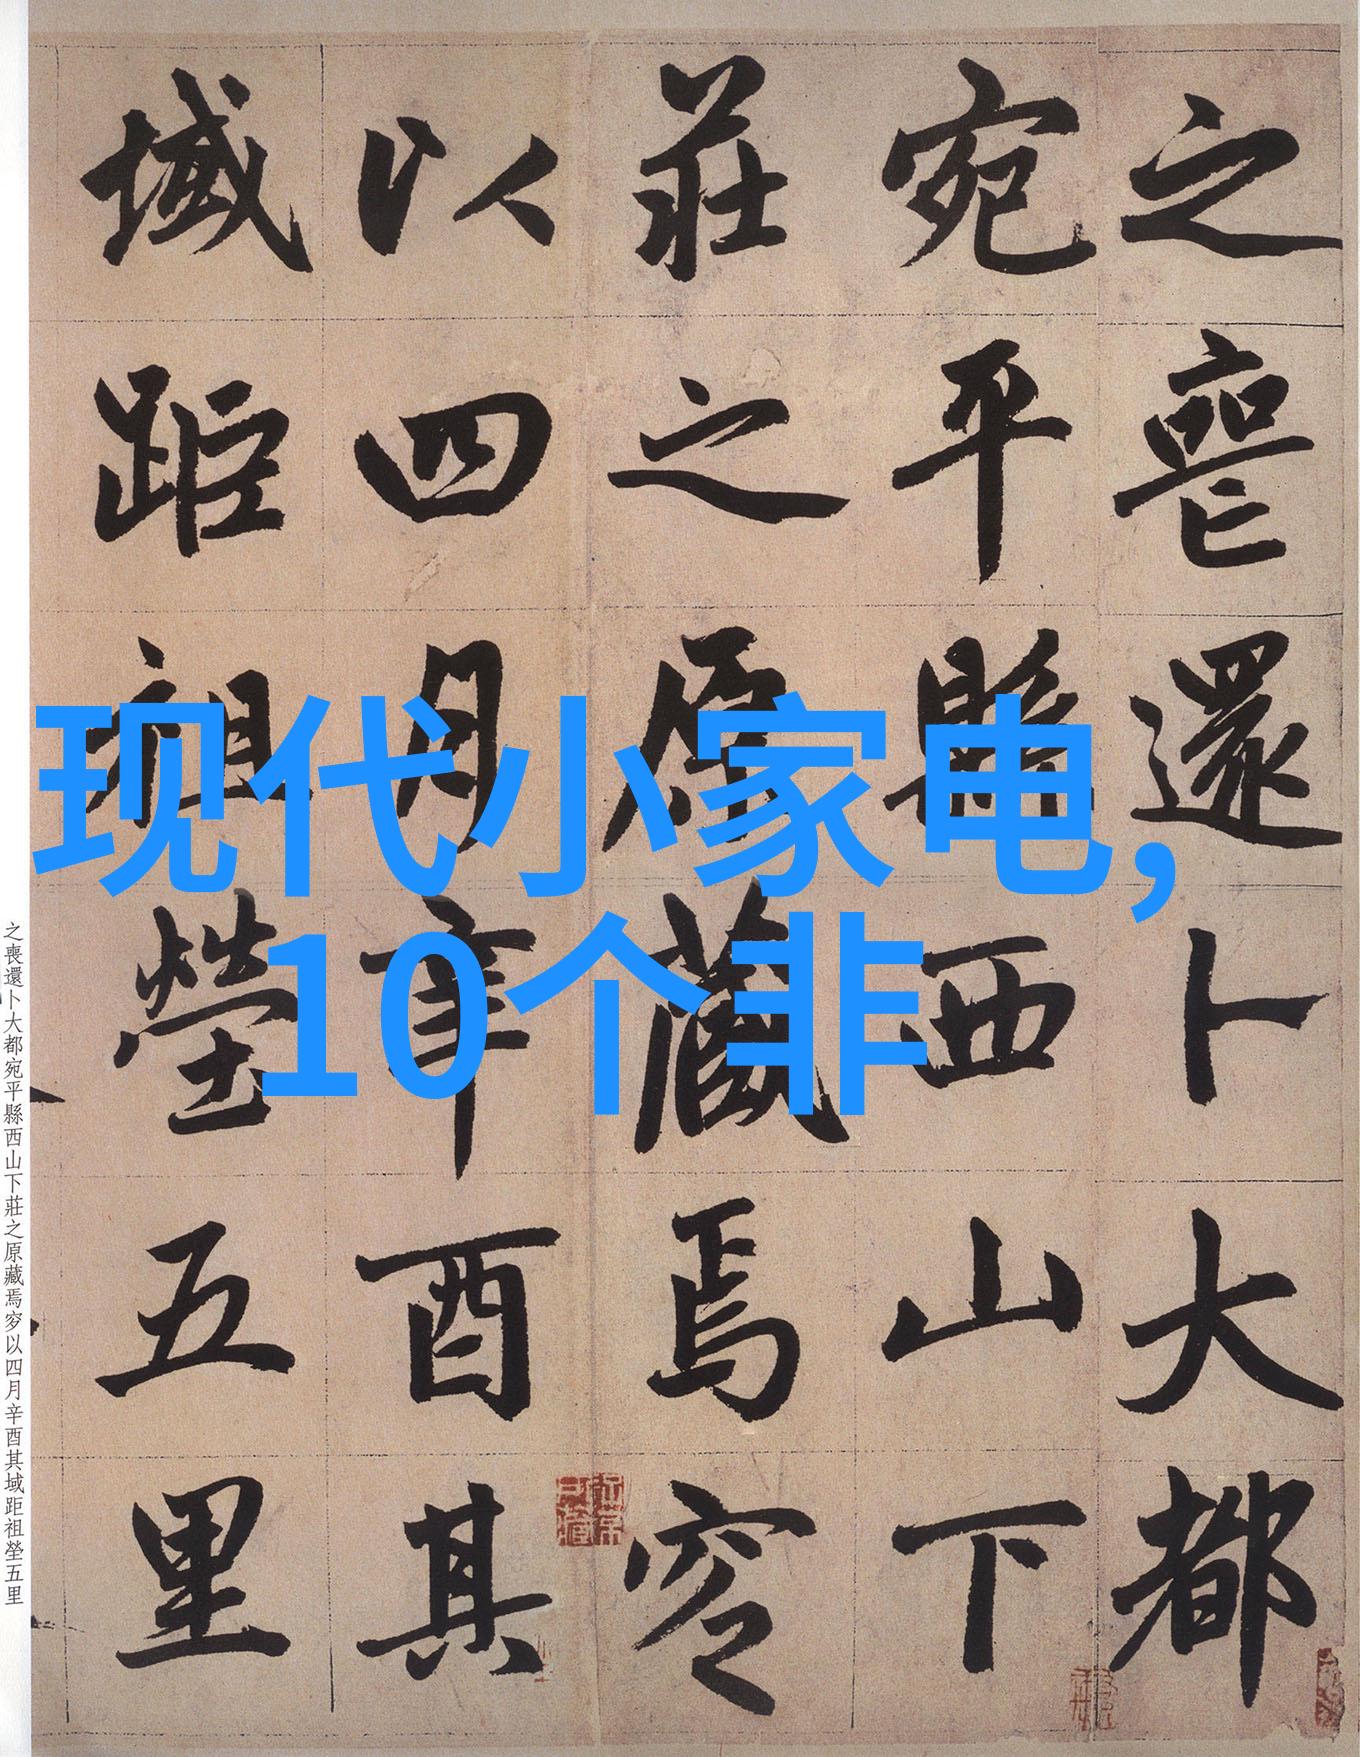 之喪還卜大都
宛平縣西山下
莊之原藏焉窆
以四月辛酉其
域距祖塋五里
现代小家电,
10个非
之喪還卜大都宛平縣西山下莊之原藏焉窆以四月辛酉其域距祖塋五里